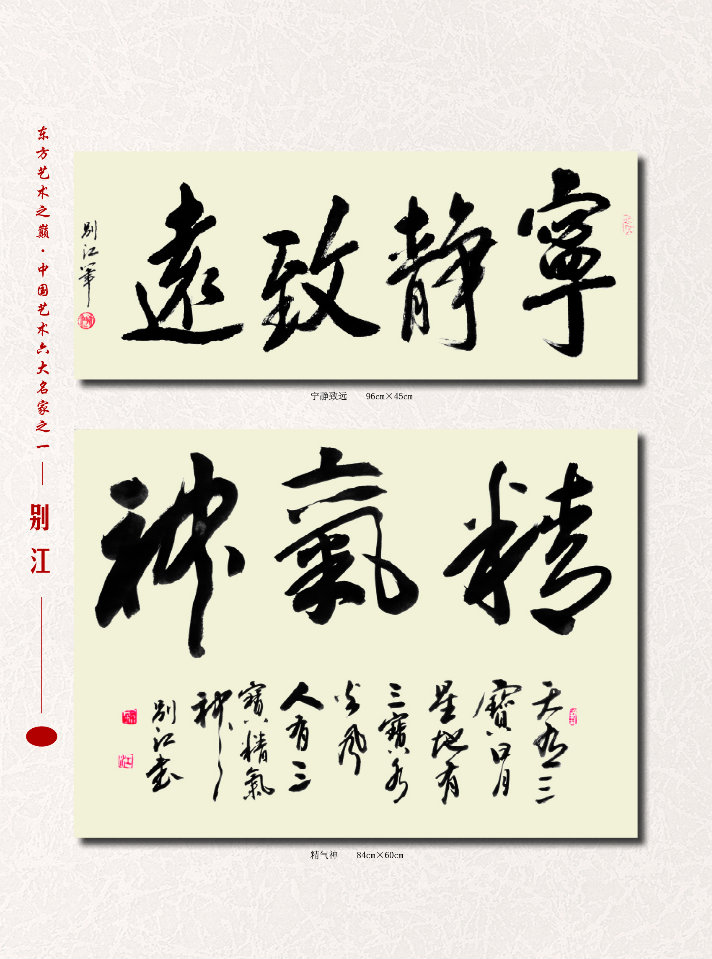 东方艺术之巅·中国艺术六大名家之一
别江
寧静致遠
别江筆
宁静致远 96cm×45cm
精氣神
天有三
寶日月
星地有
三寶水
火風
人有三
寶精氣
神
别江书
精气神 84cm×60cm